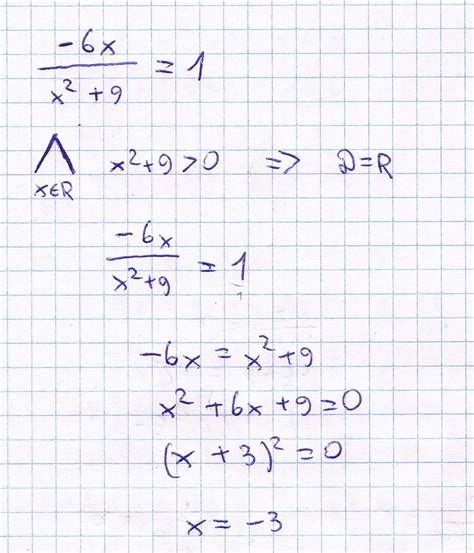 -6x / x² + 9 = 1
⋀ x∈R x² + 9 > 0 => D = R
-6x / x² + 9 = 1 / 1
-6x = x² + 9
x² + 6x + 9 = 0
(x + 3)² = 0
x = -3